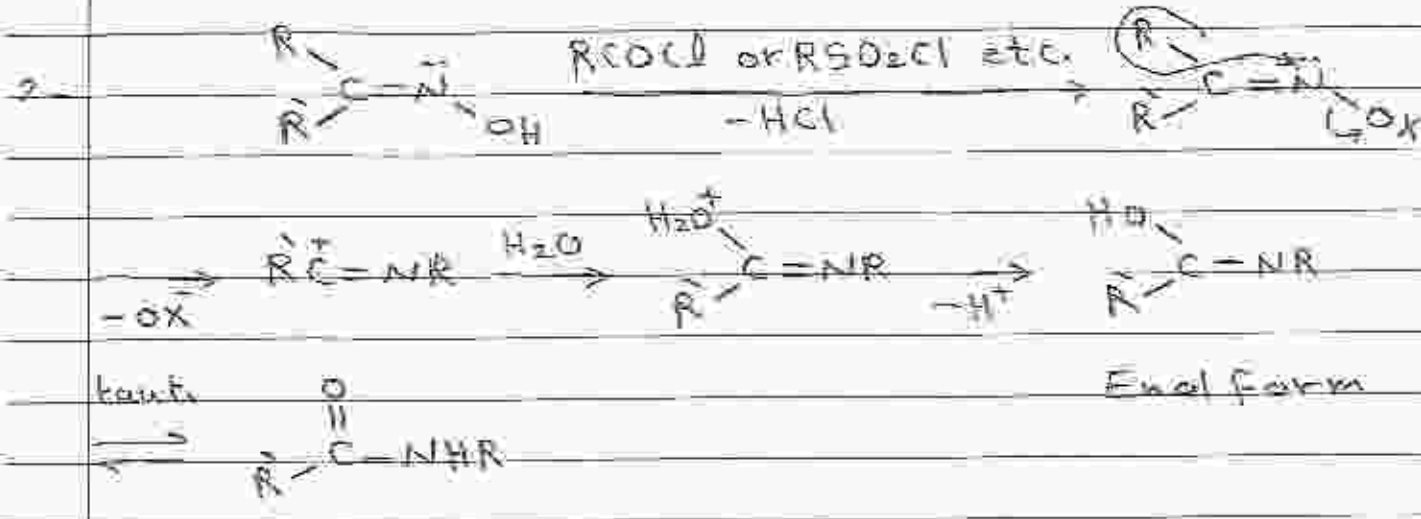 2-
R
R'
C=N̈
OH
RCOCl or RSO₂Cl etc.
-HCl
R
R'
C=N̈
OX
-OX⁻
R'C⁺=NR
H₂O
H₂O⁺
R'
C=NR
-H⁺
HO
R'
C-NR
Enol form
taut.
O
||
R'
C-NHR